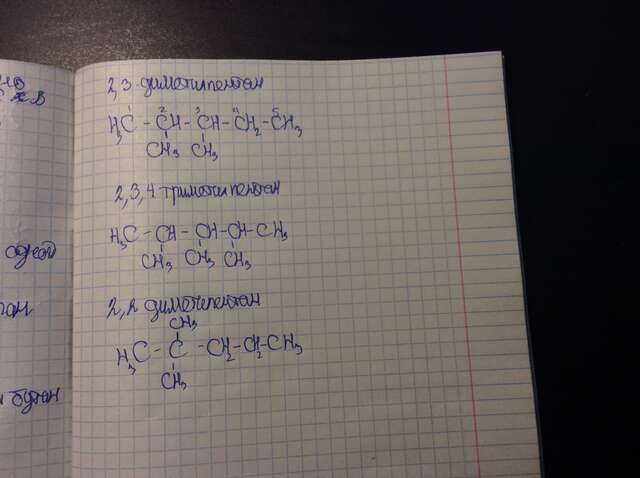 2,3 диметилпентан
1 2 3 4 5
H3C - CH - CH - CH2 - CH3
CH3 CH3
2,3,4 триметилпентан
H3C - CH - CH - CH - CH3
CH3 CH3 CH3
2,2 диметилпентан
CH3
H3C - C - CH2 - CH2 - CH3
CH3
одной
бутан